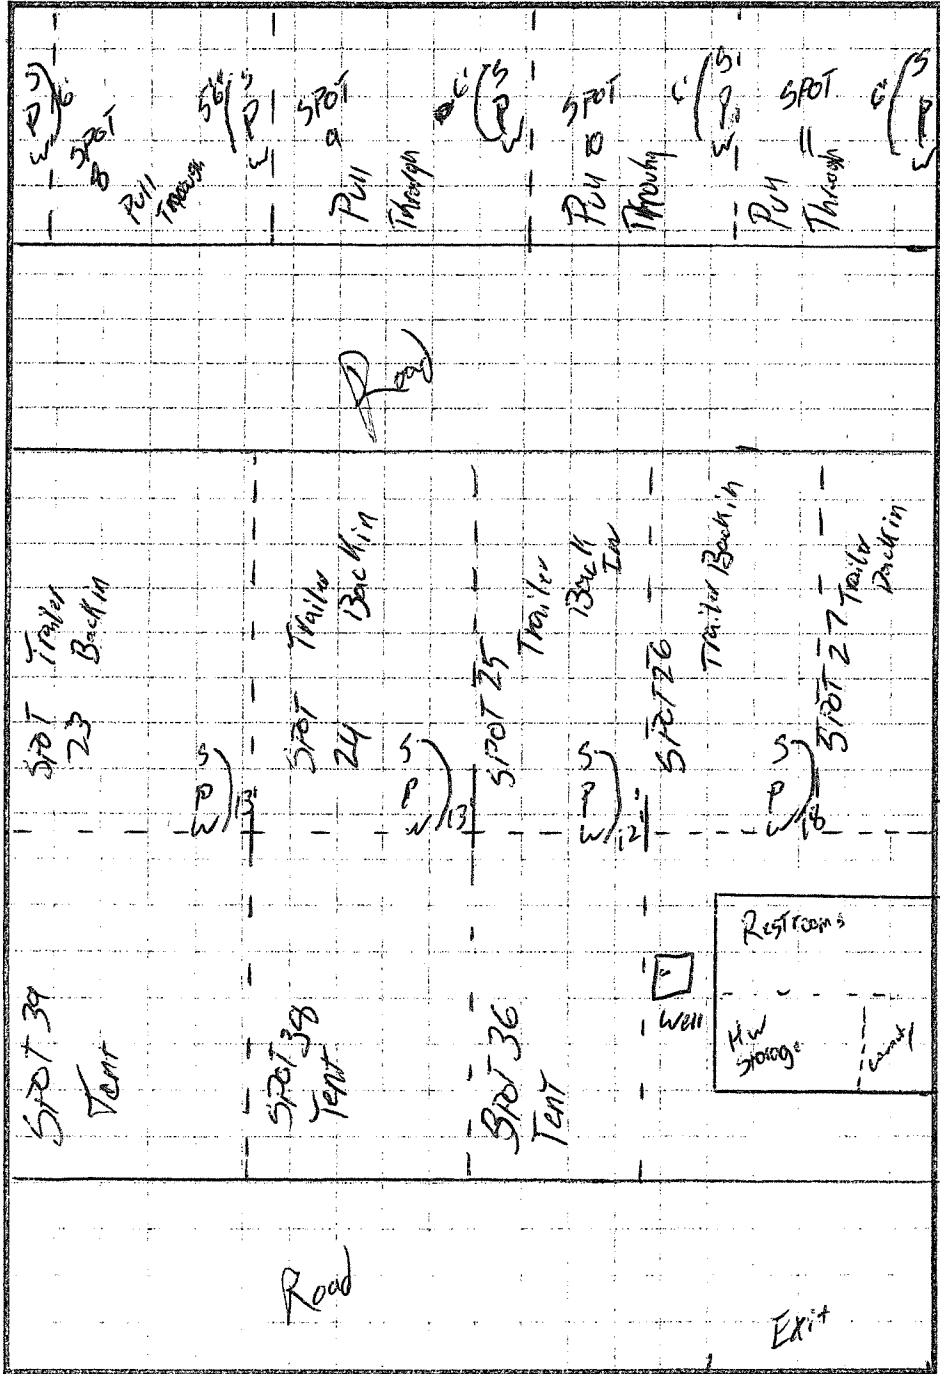 S
P
W
6'
SPOT
8
Pull
Through
5'6"
S
P
W
SPOT
9
Pull
Through
6'
S
P
W
SPOT
10
Pull
Through
6'
S
P
W
SPOT
11
Pull
Through
6'
S
P
W
Road
SPOT
23
Trailer
Back in
W P S
13'
SPOT
24
Trailer
Back in
W P S
13'
SPOT 25
Trailer
Back
In
W P S
12'
SPOT 26
Trailer Back in
W P S
18
SPOT 27
Trailer
Back in
SPOT 39
Tent
SPOT 38
Tent
SPOT 36
Tent
Well
Restrooms
HW
Storage
Road
Exit